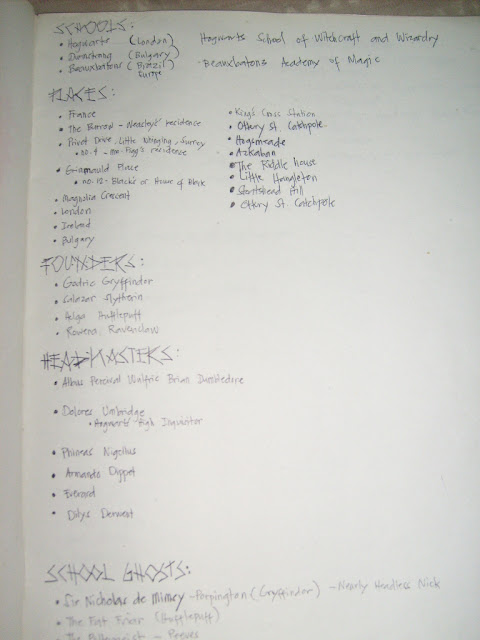 SCHOOLS:
• Hogwarts (London) Hogwarts School of Witchcraft and Wizardry
• Durmstrang (Bulgary)
• Beauxbatons (Brazil) Beauxbatons Academy of Magic
Europe
PLACES:
• France
• The Burrow - Weasleys' residence
• Privet Drive, Little Whinging, Surrey
• no. 4 - residence
• Grimauld Place
• no. 12 - Black's or House of Black
• Magnolia Crescent
• London
• Ireland
• Bulgary
• King's Cross Station
• Ottery St. Catchpole
• Hogsmeade
• Azkaban
• The Riddle house
• Little Hangleton
• Stoatshead Hill
• Ottery St. Catchpole
FOUNDERS:
• Godric Gryffindor
• Salazar Slytherin
• Helga Hufflepuff
• Rowena Ravenclaw
HEADMASTERS:
• Albus Percival Wulfric Brian Dumbledore
• Dolores Umbridge
• Hogwarts High Inquisitor
• Phineas Nigellus
• Armando Dippet
• Everard
• Dilys Derwent
SCHOOL GHOSTS:
• Sir Nicholas de Mimsy - Porpington (Gryffindor) - Nearly Headless Nick
• The Fat Friar (Hufflepuff)
• The Poltergeist - Peeves